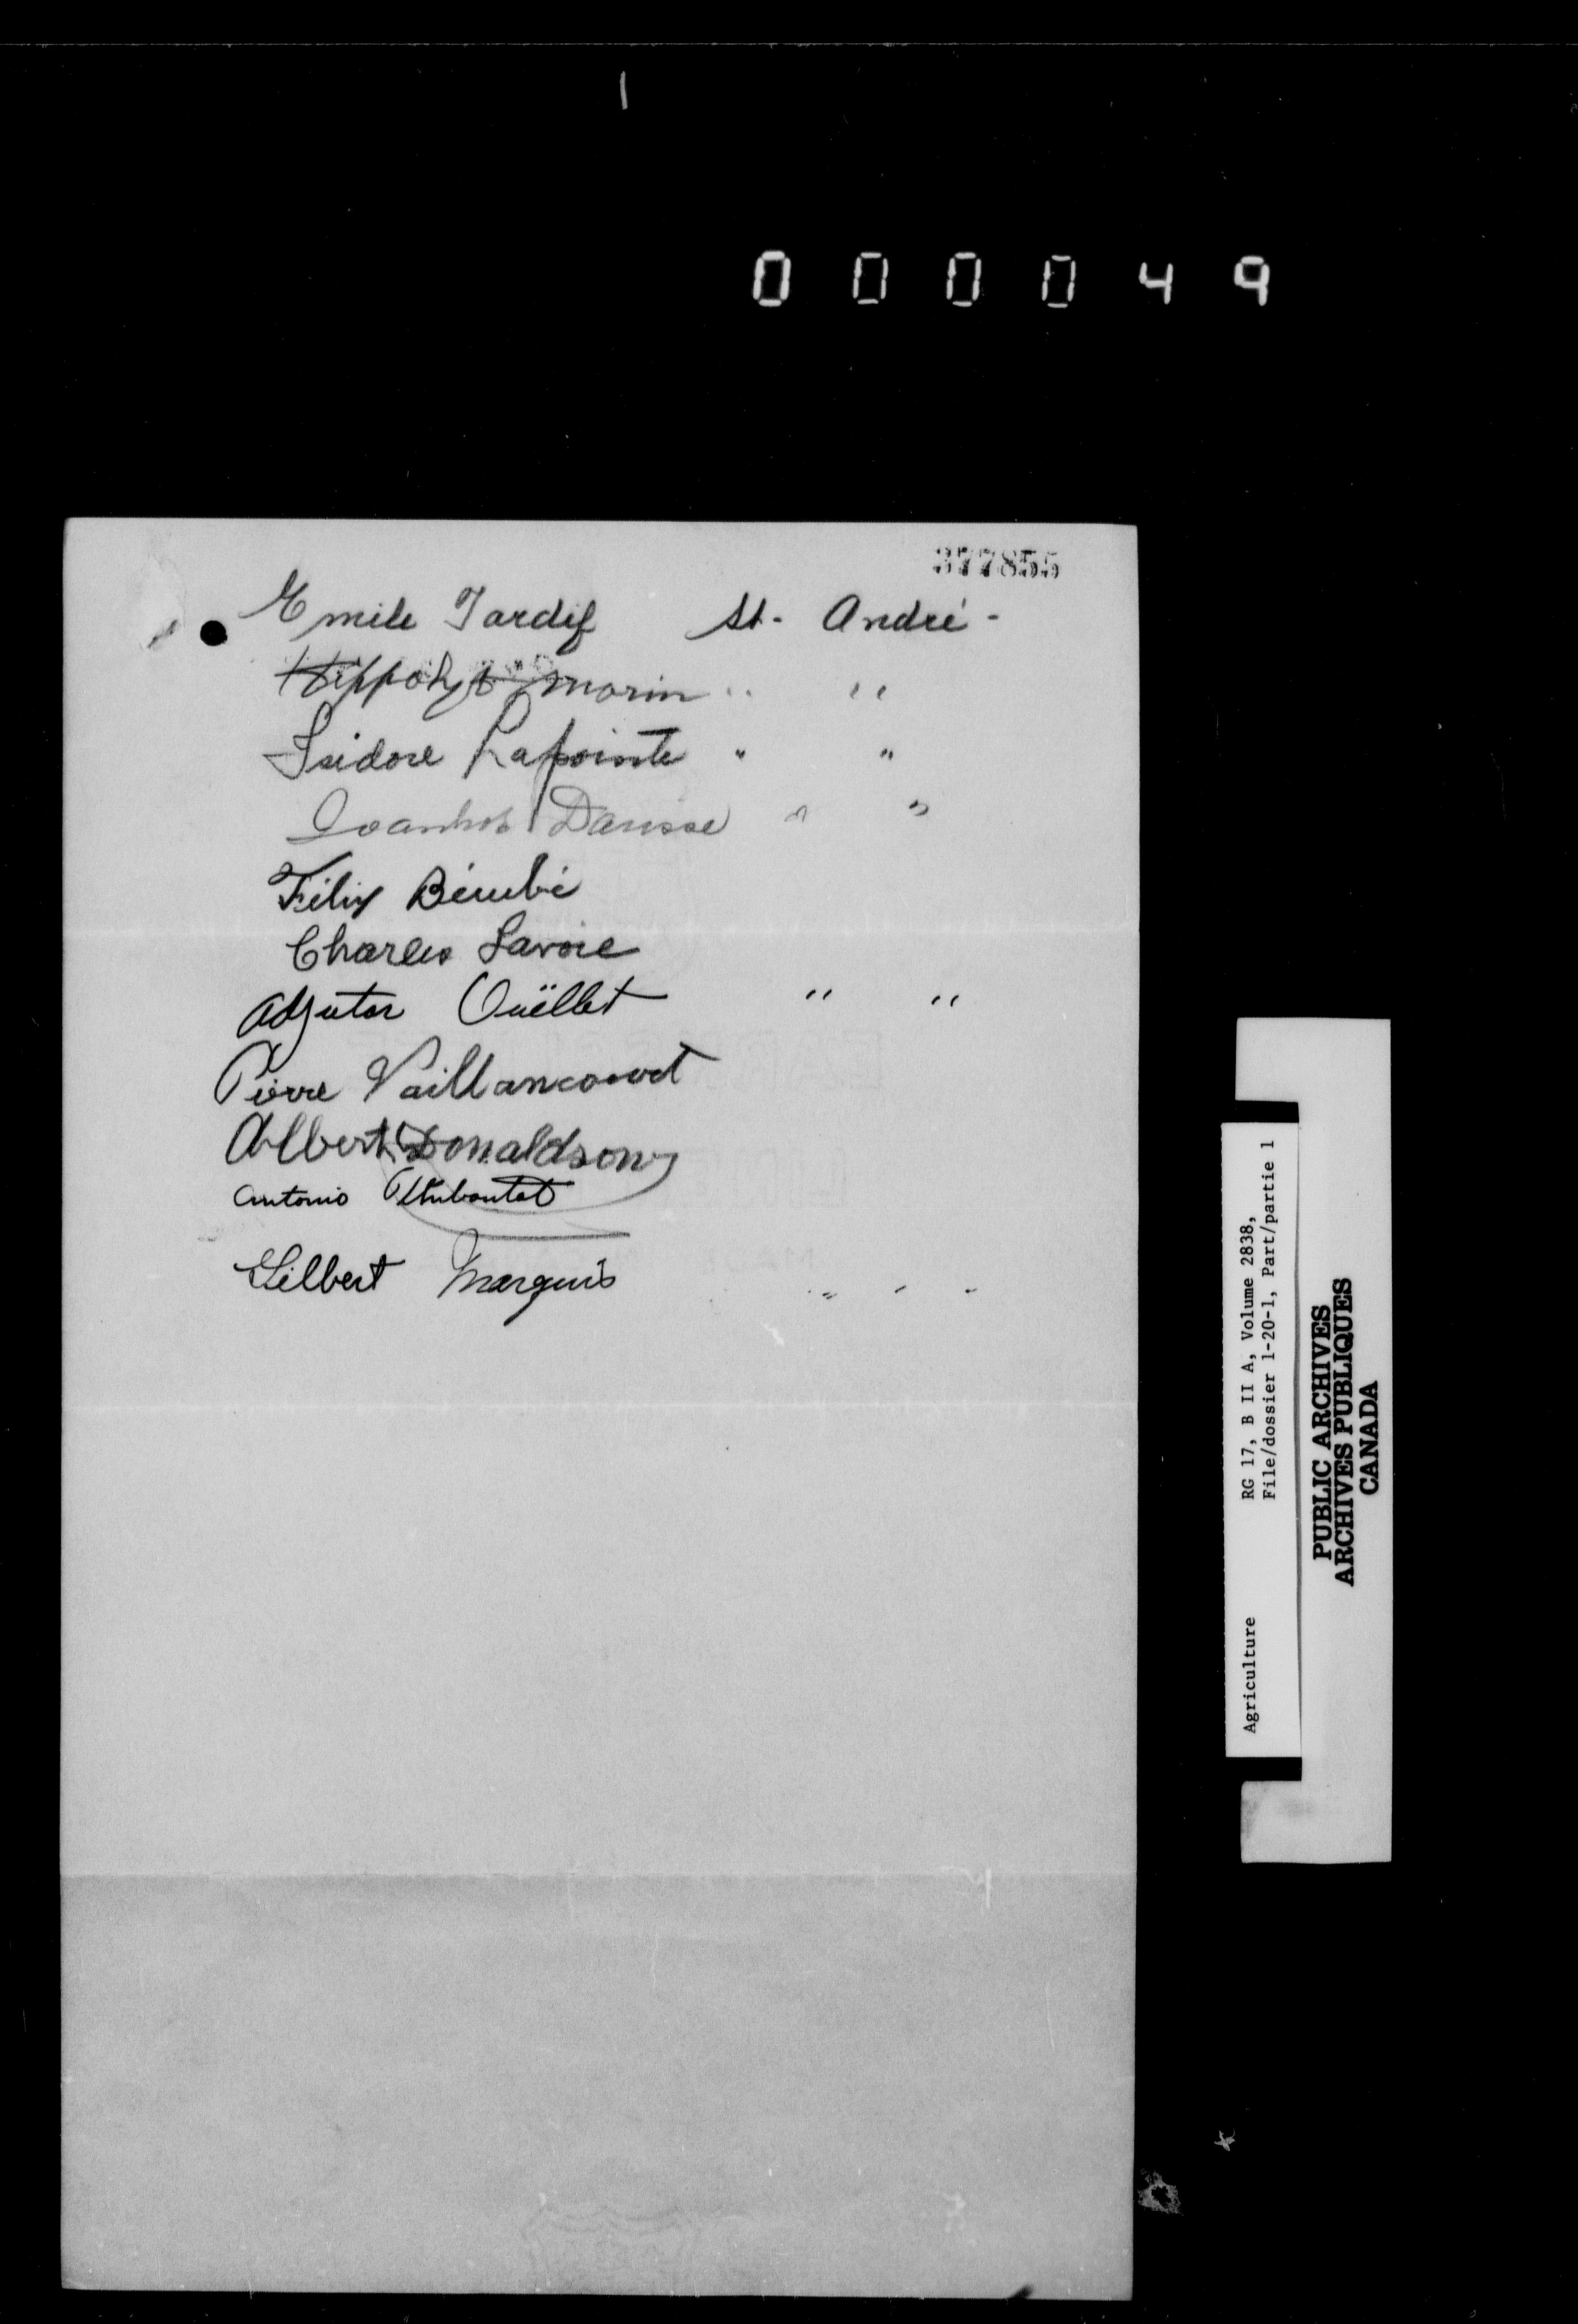 000049
377855
Emile Tardif St. André -
Hippolyte Morin " "
Isidore Lapointe " "
Ivanhoë Darisse " "
Félix Bérubé
Charles Lavoie
Adjutor Ouëllet " "
Pierre Vaillancourt
Albert Donaldson
Antonio Thiboutot
Gilbert Marquis " " "
Agriculture RG 17, B II A, Volume 2838,
File/dossier 1-20-1, Part/partie 1
PUBLIC ARCHIVES
ARCHIVES PUBLIQUES
CANADA